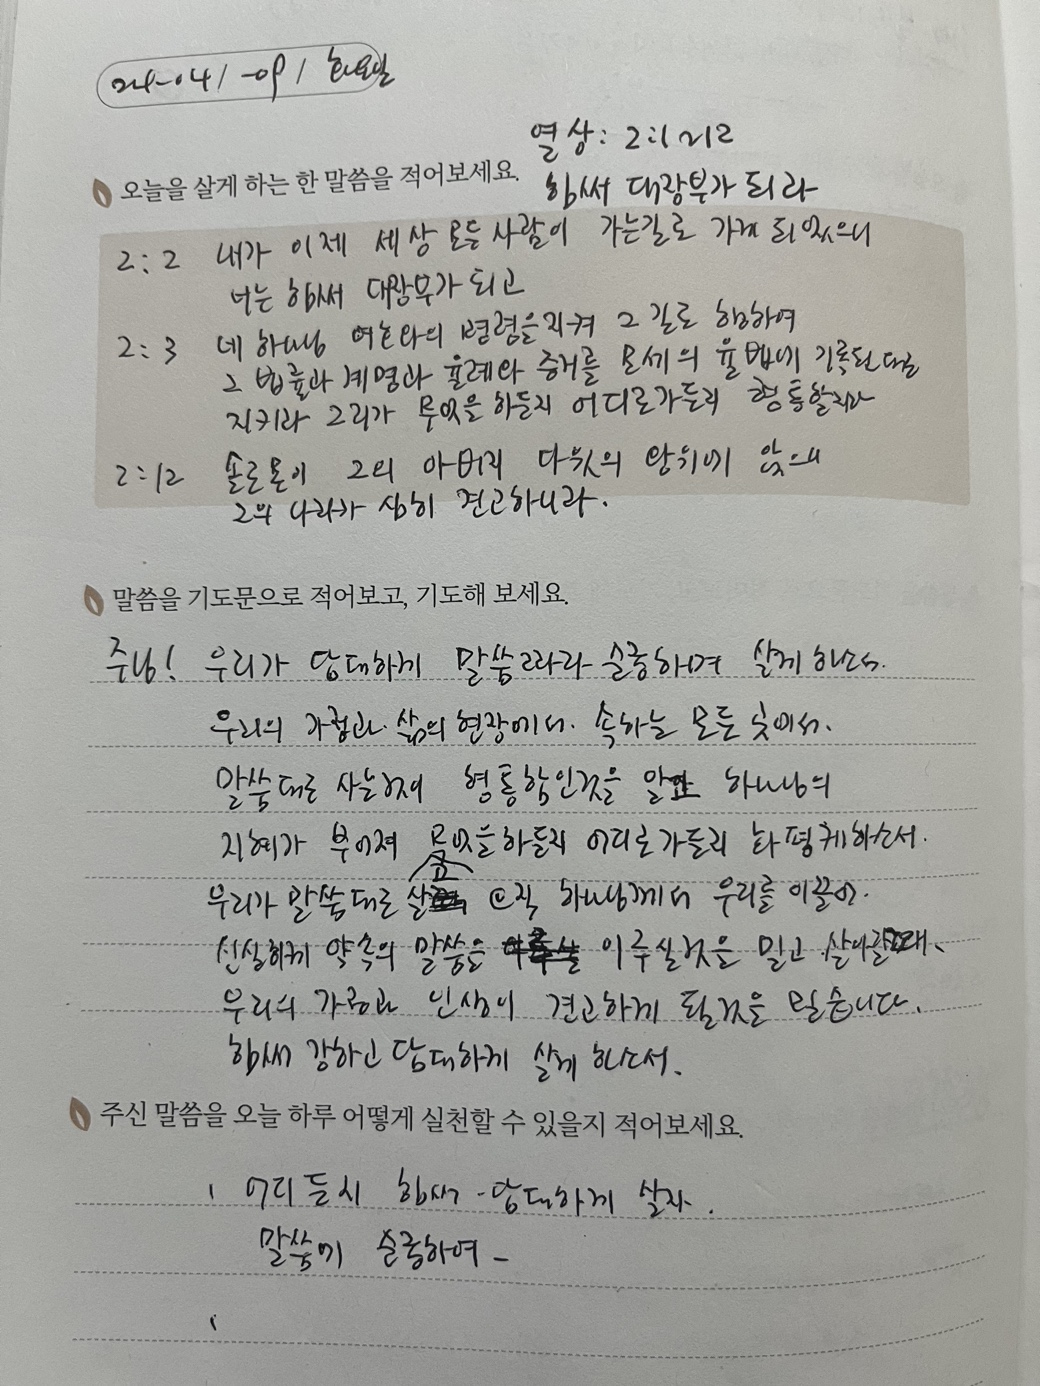 24-04/-09/ 화요일
열상: 2:1~12
오늘을 살게 하는 한 말씀을 적어보세요.
힘써 대장부가 되라
2:2 내가 이제 세상 모든 사람이 가는길로 가게 되었으니
너는 힘써 대장부가 되고
2:3 네 하나님 여호와의 명령을 지켜 그 길로 행하여
그 법률과 계명과 율례와 증거를 모세의 율법에 기록된대로
지키라 그리가 무엇을 하든지 어디로가든지 형통할지라
2:12 솔로몬이 그의 아버지 다윗의 왕위에 앉으니
그의 나라가 심히 견고하니라.
말씀을 기도문으로 적어보고, 기도해 보세요.
주님! 우리가 담대하게 말씀 순종하며 살게 하소서.
우리의 가정과 삶의 현장에서. 속하는 모든 곳에서.
말씀대로 사는것이 형통함인것을 알고 하나님의
지혜가 부어져 무엇을하든지 어디로가든지 화평케하소서.
우리가 말씀대로 살고 오직 하나님께서 우리를 이끌어.
신실하게 약속의 말씀을 이루실것을 믿고 살아갈때.
우리의 가정과 인생이 견고하게 될것을 믿습니다.
힘써 강하고 담대하게 살게 하소서.
주신 말씀을 오늘 하루 어떻게 실천할 수 있을지 적어보세요.
어디든지 힘써 담대하게 살자.
말씀에 순종하여-